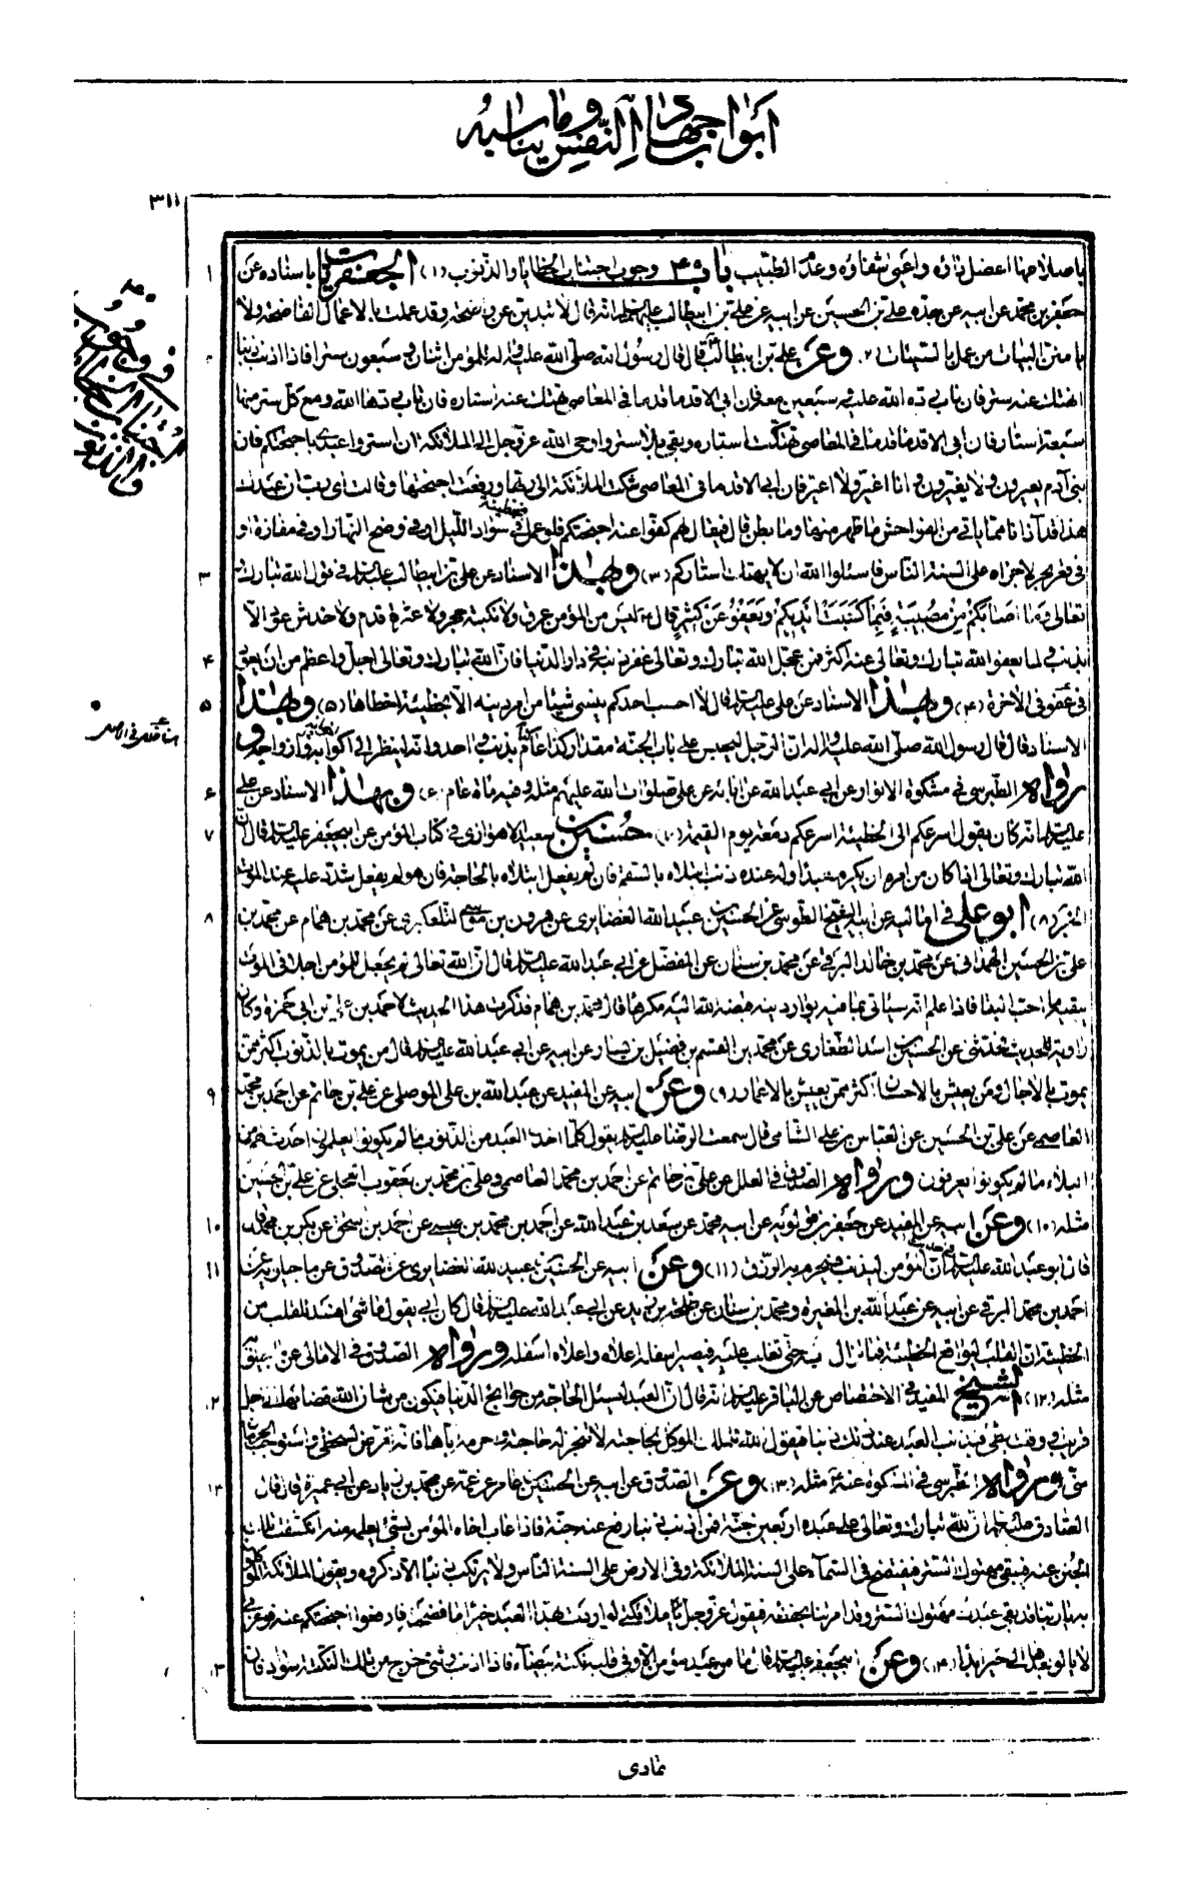 ابواب جهاد النفس وما يناسبه
٣١١
باصلاحها اعضل داؤه واعيى شفاؤه وعدم الطبيب باب ٤٠ وجوب اجتناب الخطايا والذنوب (١) الجعفريات باسناده عن
جعفر بن محمد عن ابيه عن جده علي بن الحسين عن ابيه عن علي بن ابيطالب عليهم السلام انه قال لا تبدين عن واضحة وقد عملت بالاعمال الفاضحة ولا
يأمنن البيات من عمل بالسيئات (٢) وعن علي بن ابيطالب قال قال رسول الله صلى الله عليه واله للمؤمن اثنان وسبعون سترا فاذا اذنب ذنبا
انهتك عنه ستر فان تاب رده الله عليه في سبعين معه فان ابى الا قدما قدما في المعاصي تهتك عنه استاره فان تاب ردها الله ومع كل ستر منها
سبعة استار فان ابى الا قدما قدما في المعاصي تهتكت استاره وبقي بلا ستر واوحى الله عز وجل الى الملائكة ان استروا عبدي باجنحتكم فان
بني آدم يعيرون ولا يغيرون وانا اغير ولا اعير فان ابى الا قدما في المعاصي شكت الملائكة الى ربها ورفعت اجنحتها وقالت اي رب ان عبدك
هذا قد آذانا مما يأتي من الفواحش ما ظهر منها وما بطن قال فيقال لهم كفوا عنه اجنحتكم فلو عمل بخطيئة في سواد الليل او في وضح النهار او في مفازة او
في قعر بحر لاجراه على السنة الناس فاسئلوا الله ان لا يهتك استاركم (٣) وبهذا الاسناد عن علي بن ابيطالب عليه السلام في قول الله تبارك و
تعالى وما اصابكم من مصيبة فبما كسبت ايديكم ويعفو عن كثير قال ليس من المؤمن عرق ولا نكبة حجر ولا عثرة قدم ولا خدش عود الا
بذنب ولما يعفو الله تبارك وتعالى عنه اكثر فمن عجل الله تبارك وتعالى عقوبة ذنبه في دار الدنيا فان الله تبارك وتعالى اجل واعظم من ان يعود
في عفوه في الآخرة (٤) وبهذا الاسناد عن علي عليه السلام قال لا احسب احدكم ينسى شيئا من امر دينه الا بخطيئة اخطاها (٥) وبهذا
الاسناد قال قال رسول الله صلى الله عليه واله ان الرجل ليحبس على باب الجنة مقدار كذا عام بذنب واحد وانه لينظر الى اكوابه وازواجه و
رواه الطبرسي في مشكوة الانوار عن ابي عبد الله عن ابائه عن علي صلوات الله عليهم مثله وفيه مأة عام (٦) وبهذا الاسناد عن علي
عليه السلام انه كان يقول اسرعكم الى الخطيئة اسرعكم دمعة يوم القيمة (٧) حسين بن سعيد الاهوازي في كتاب المؤمن عن ابيجعفر عليه السلام قال ان
الله تبارك وتعالى اذا كان من امره ان يكرم عبدا وله عنده ذنب ابتلاه بالسقم فان لم يفعل ابتلاه بالحاجة فان هو لم يفعل شدد عليه عند الموت
الخبر (٨) ابو علي في اماليه عن ابيه الشيخ الطوسي عن الحسين بن عبيد الله الغضايري عن هرون بن موسى التلعكبري عن محمد بن همام عن محمد بن
علي بن الحسين الهمداني عن محمد بن خالد البرقي عن محمد بن سنان عن المفضل عن ابي عبد الله عليه السلام قال ان الله تعالى لم يجعل للمؤمن اجلا في الموت
يبقيه ما احب البقاء فاذا علم انه سيأتي بما فيه بوار دينه قبضه الله اليه مكرما قال محمد بن همام فذكرت هذا الحديث لاحمد بن علي بن ابي حمزة وكان
راوية للحديث فحدثني عن الحسين بن اسد الطفاوي عن محمد بن القسم بن فضيل بن يسار عن ابيه عن ابي عبد الله عليه السلام قال من يموت بالذنوب اكثر ممن
يموت بالاجال ومن يعيش بالاحسان اكثر ممن يعيش بالاعمار (٩) وعن ابيه عن المفيد عن عبد الله بن علي الموصلي عن علي بن حاتم عن احمد بن محمد
العاصمي عن علي بن الحسين عن العباس بن علي الشامي قال سمعت الرضا عليه السلام يقول كلما احدث العبد من الذنوب ما لم يكونوا يعلمون احدث لهم من
البلاء ما لم يكونوا يعرفون ورواه الصدوق في العلل عن علي بن حاتم عن احمد بن محمد العاصمي وعلي بن محمد بن يعقوب العجلي عن علي بن الحسين
مثله (١٠) وعن ابيه عن المفيد عن جعفر بن قولويه عن ابيه محمد عن سعد بن عبد الله عن احمد بن محمد بن عيسى عن احمد بن اسحق عن بكر بن محمد قال
قال ابو عبد الله عليه السلام ان المؤمن ليذنب فيحرم به الرزق (١١) وعن ابيه عن الحسين بن عبيد الله الغضايري عن الصدوق عن ماجيلويه عن
احمد بن محمد البرقي عن ابيه عن عبد الله بن المغيرة ومحمد بن سنان عن طلحة بن زيد عن ابي عبد الله عليه السلام قال كان ابي يقول ما شيء افسد للقلب من
الخطيئة ان القلب ليواقع الخطيئة فما تزال به حتى تغلب عليه فيصير اسفله اعلاه واعلاه اسفله ورواه الصدوق في الامالي عن ابيه
مثله (١٢) الشيخ المفيد في الاختصاص عن الباقر عليه السلام انه قال ان العبد ليسئل الحاجة من حوائج الدنيا فيكون من شان الله قضائها الى اجل
قريب او وقت بطيء فيذنب العبد عند ذلك ذنبا فيقول الله للملك الموكل بحاجته لا تنجز له حاجته واحرمه اياها فانه تعرض لسخطي واستوجب الحرمان
مني ورواه الطبرسي في المشكوة عنه مثله (١٣) وعن الصدوق عن ابيه عن الحسين بن عامر عن عمه عن محمد بن زياد عن ابن عميرة قال قال
الصادق عليه السلام ان لله تبارك وتعالى على عبده اربعين جنة فمن اذنب ذنبا رفع عنه جنة فاذا عاب اخاه المؤمن بشيء يعلمه منه انكشفت تلك
الجنن عنه فيبقى مهتوك الستر فيفتضح في السماء على السنة الملائكة وفي الارض على السنة الناس ولا يرتكب ذنبا الا ذكروه ويقول الملائكة الموكلون
به يا ربنا قد بقي عبدك مهتوك الستر وقد امرتنا بحفظه فيقول عز وجل ملائكتي لو اردت بهذا العبد خيرا ما فضحته فارفعوا اجنحتكم عنه فوعزتي
لا يؤل بعدها الى خير ابدا (١٤) وعن ابيجعفر عليه السلام قال ما من عبد مؤمن الا وفي قلبه نكتة بيضاء فاذا اذنب وثنى خرج من تلك النكتة سواد فان
تمادى
٤٠
في وجوب
اجتناب الخطايا
والذنوب